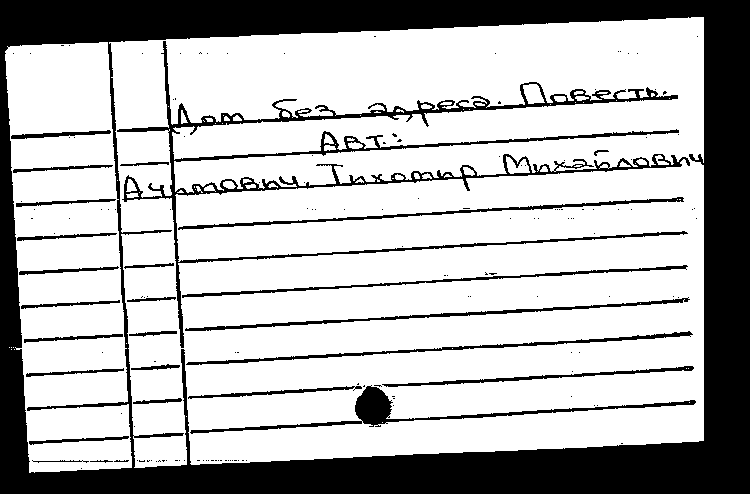 Дом без адреса. Повесть.
Авт.:
Ачимович, Тихомир Михайлович